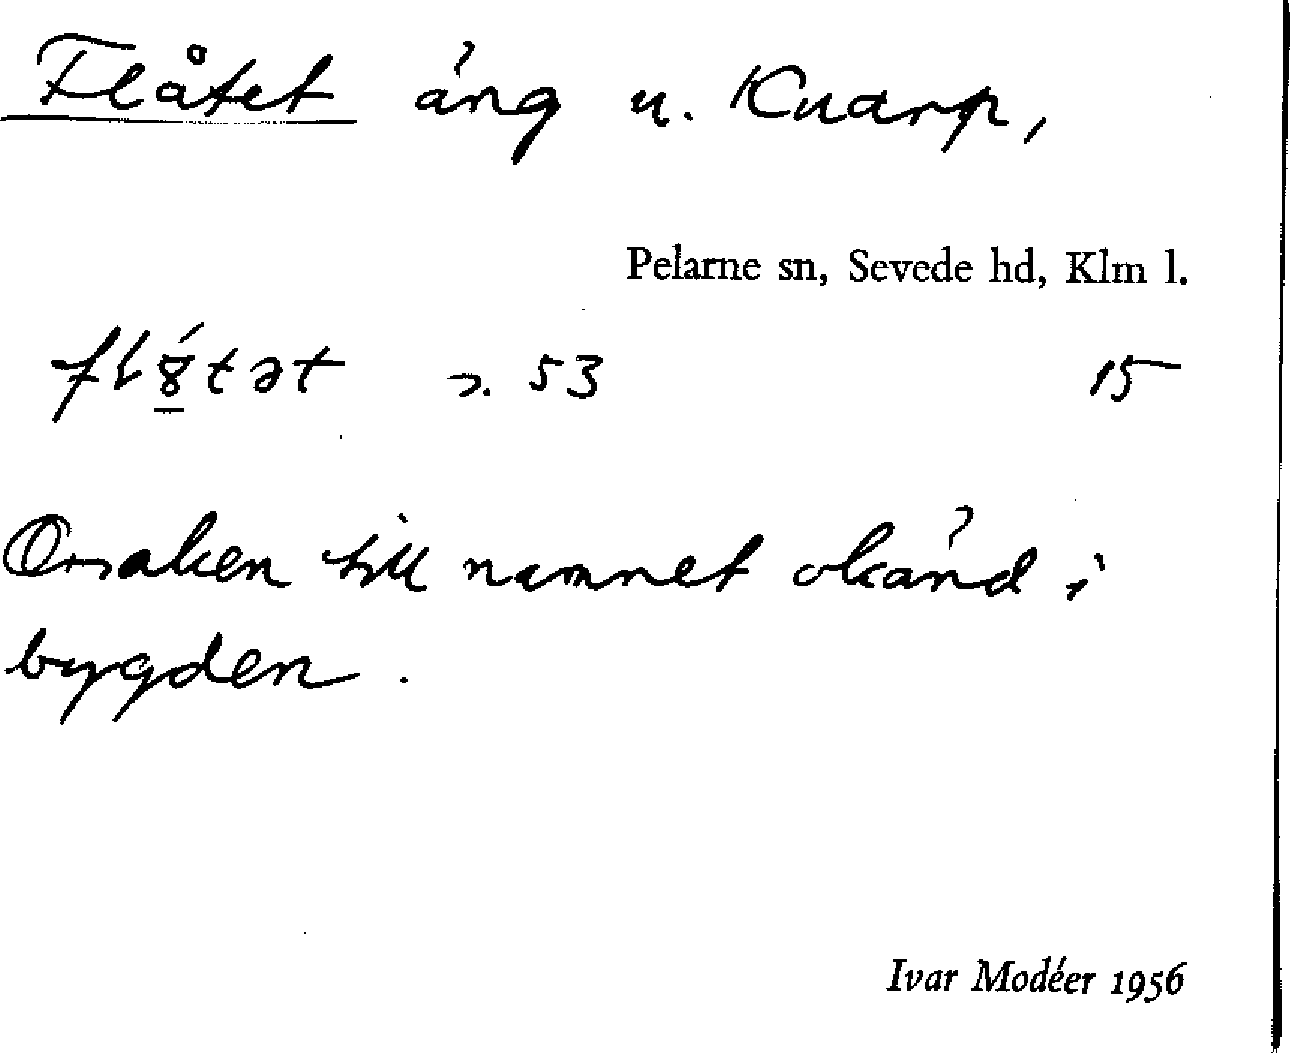 Flåtet äng u. Knarp,
Pelarne sn, Sevede hd, Klm l.
53 15
Orsaken till namnet okänd i
bygden.
Ivar Modéer 1956